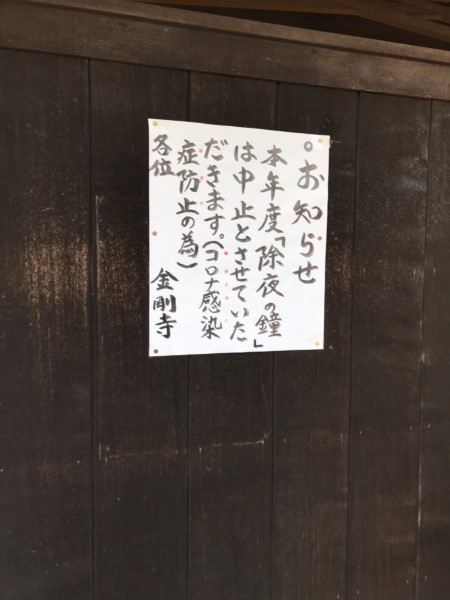 。お知らせ
本年度「除夜の鐘」
は中止とさせていた
だきます。(コロナ感染
症防止の為)
各位
金剛寺